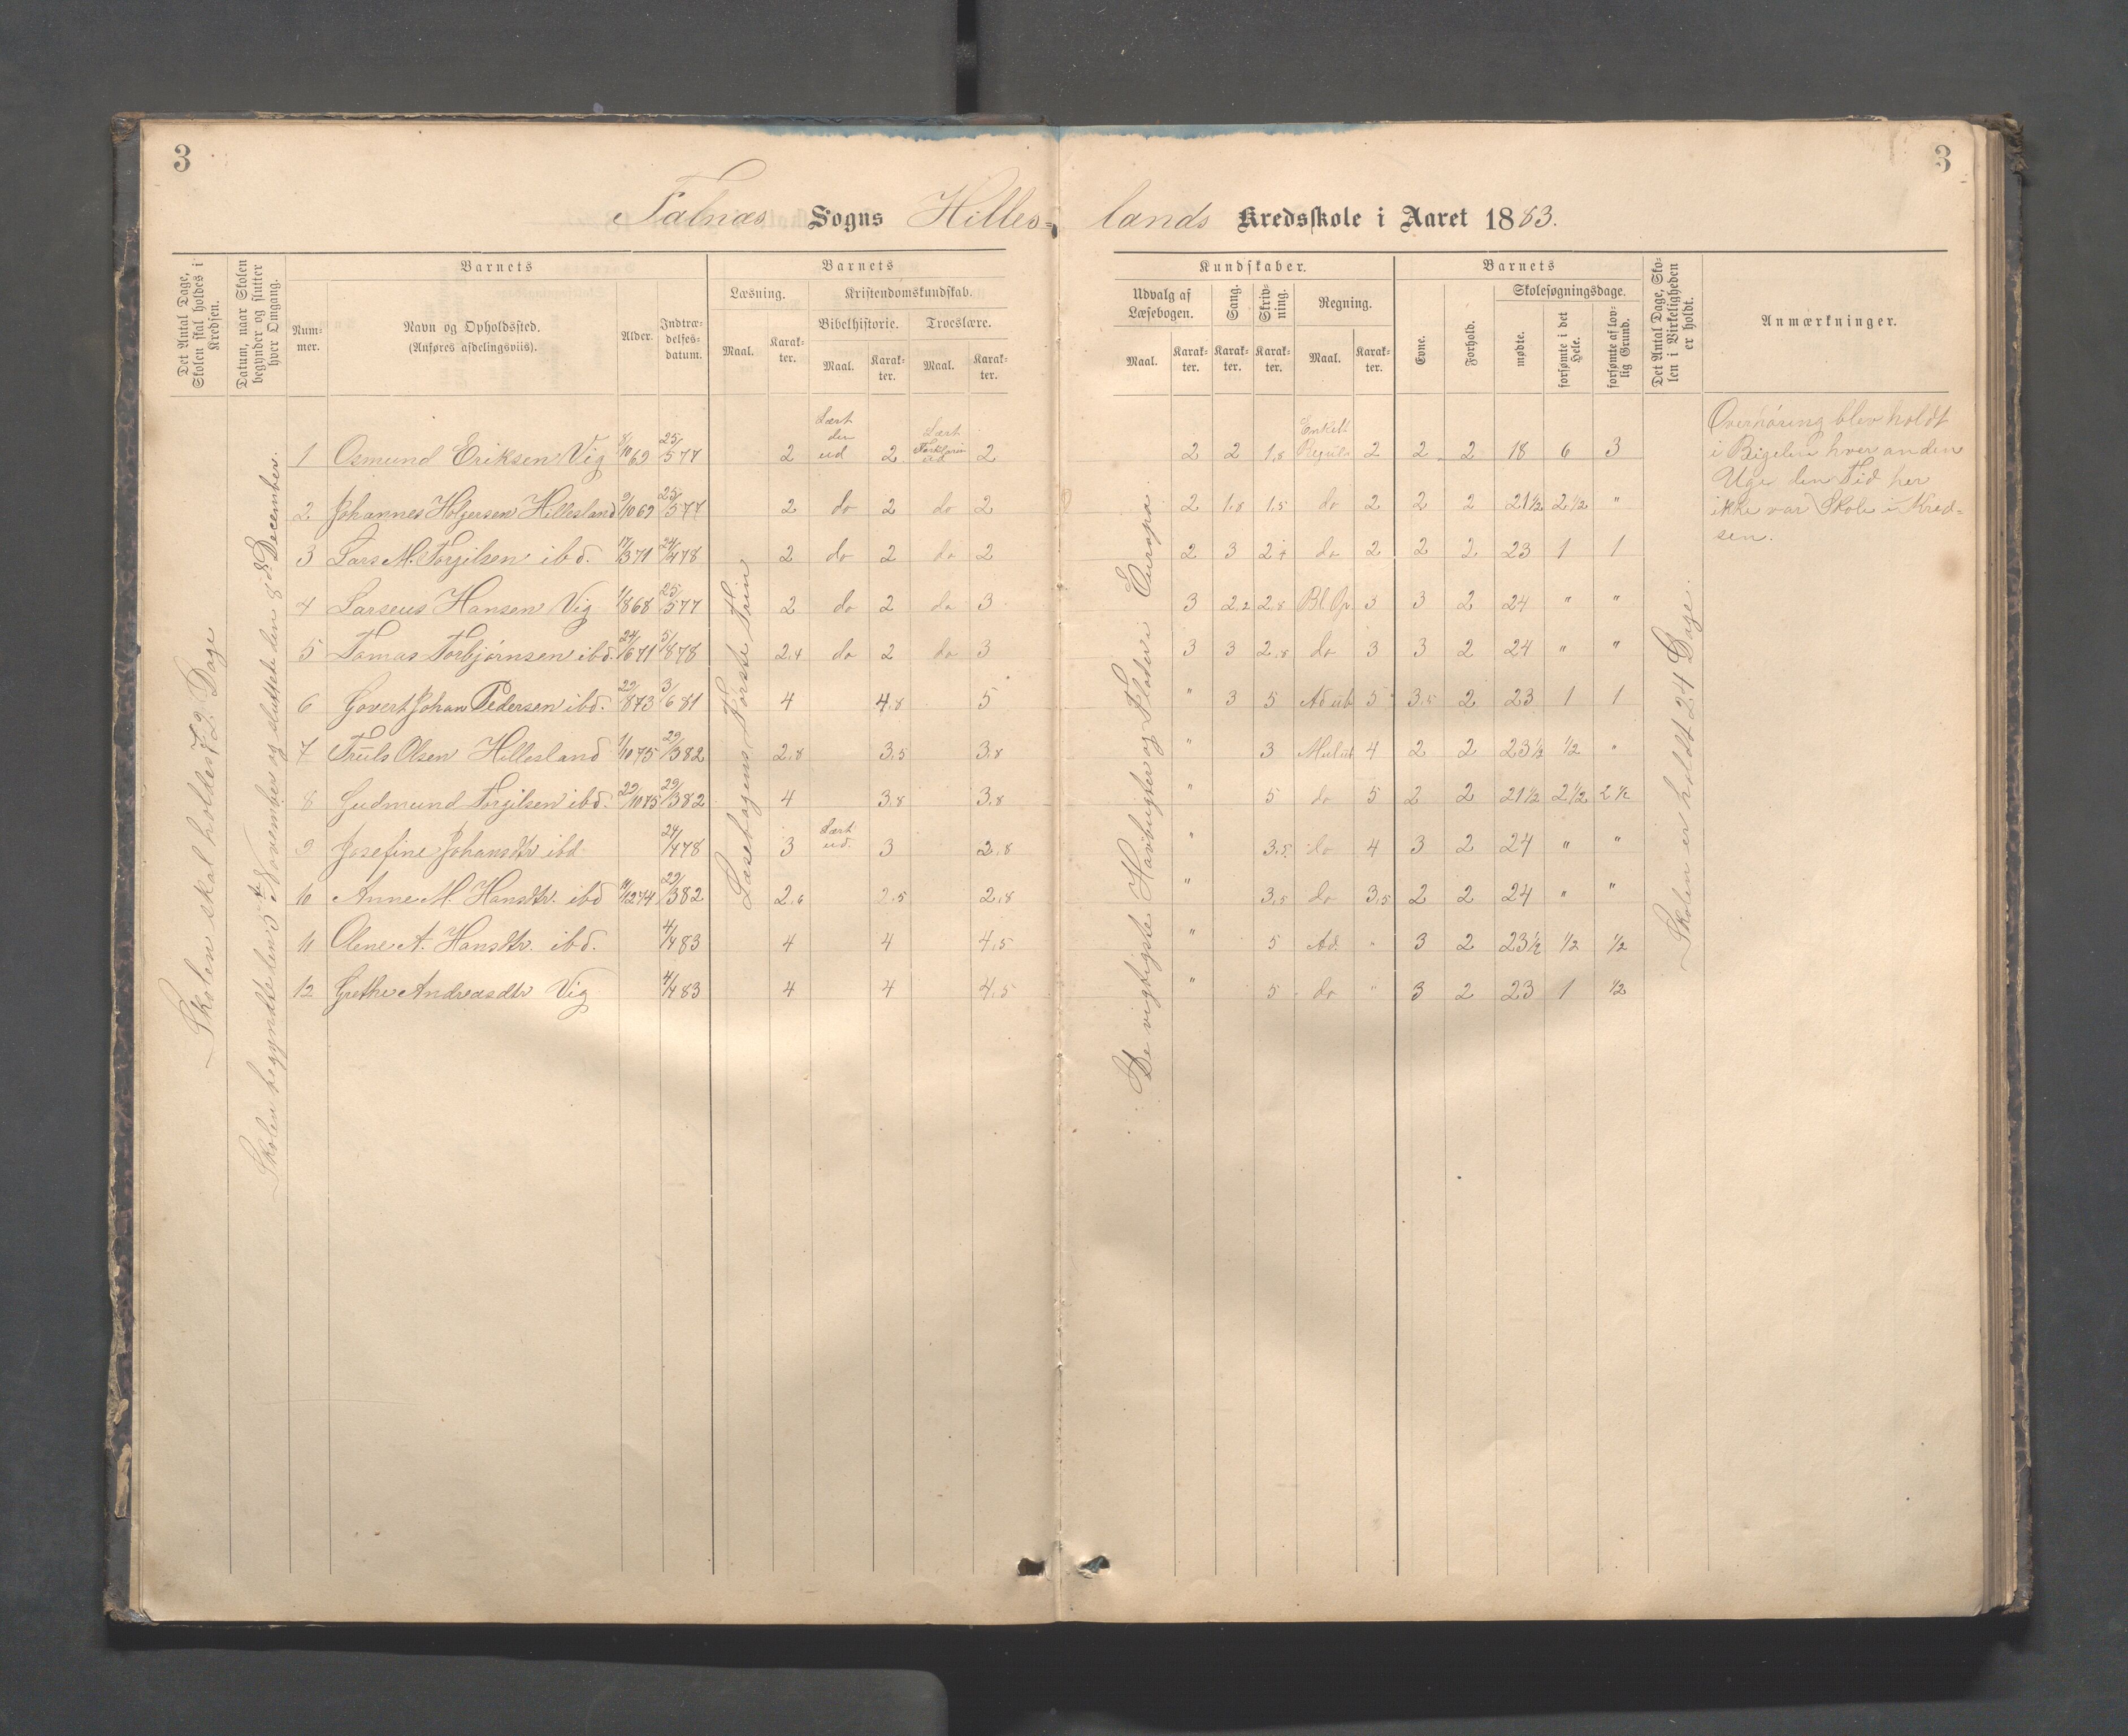 3
3
Falnæs Sogns Hilles=
lands Kredsskole i Aaret 1883.
Det Antal Dage, Skolen skal holdes i Kredsen.
Datum, naar Skolen begynder og slutter hver Omgang.
Barnets
Num-mer.
Navn og Opholdssted.
(Anføres afdelingsviis).
Alder.
Indtræ-delses-datum.
Barnets
Læsning.
Maal.
Karak-ter.
Kristendomskundskab.
Bibelhistorie.
Troeslære.
Maal.
Karak-ter.
Maal.
Karak-ter.
Kundskaber.
Udvalg af Læsebogen.
Maal.
Karak-ter.
Sang.
Karak-ter.
Skriv-ning.
Karak-ter.
Regning.
Maal.
Karak-ter.
Barnets
Evne.
Forhold.
Skolesøgningsdage.
mødte.
forsømte i det Hele.
forsømte af lov-lig Grund.
Det Antal Dage, Sko-len i Virkeligheden er holdt.
Anmærkninger.
Skolen skal holdes 72 Dage
Skolen begyndte den 5te November og sluttede den 8de December.
Læsebogens Første Trin
De vigtigste Havbugter og Floder i Europa.
Skolen er holdt 24 Dage.
1 Osmund Eriksen Vig 8/10 69 25/5 77 2 Lært den ud 2 Lært Forklarin ud 2 2 2 1,8 Enkelt Regula 2 2 2 18 6 3
2 Johannes Holgersen Hillesland 9/10 69 25/5 77 2 do 2 do 2 2 1,8 1,5 do 2 2 2 21½ 2½ "
3 Lars M. Torgilsen ibd. 17/3 71 24/4 78 2 do 2 do 2 2 3 2,4 do 2 2 2 23 1 1
4 Larseus Hansen Vig 1/8 68 25/5 77 2 do 2 do 3 3 2,2 2,8 Bl. Op. 3 3 2 24 " "
5 Tomas Torbjørnsen ibd. 24/6 71 5/8 78 2,4 do 2 do 3 3 3 2,8 do 3 3 2 24 " "
6 Govert Johan Pedersen ibd. 22/8 73 3/6 81 4 4,8 5 " 3 5 Ad ub 5 3,5 2 23 1 1
7 Truls Olsen Hillesland 1/10 75 29/3 82 2,8 3,5 3,8 " 3 Mulub 4 2 2 23½ ½ "
8 Gudmund Torgilsen ibd. 22/10 75 29/3 82 4 3,8 3,8 " 5 do 5 2 2 21½ 2½ 2½
9 Josefine Johansdtr ibd 24/4 78 3 Lært ud. 3 2,8 " 3,5 do 4 3 2 24 " "
10 Anne M. Hansdtr. ibd 11/12 74 29/3 82 2,6 2,5 2,8 " 3,5 do 3,5 2 2 24 " "
11 Olene A. Hansdtr. ibd. 4/4 83 4 4 4,5 " 5 Ad. " 3 2 23½ ½ ½
12 Grethe Andreasdtr Vig 4/4 83 4 4 4,5 " 5 do " 3 2 23 1 ½
Overhøring blev holdt
i Bigelin hver anden
Uge den Tid her
ikke var Skole i Kred=
sen.